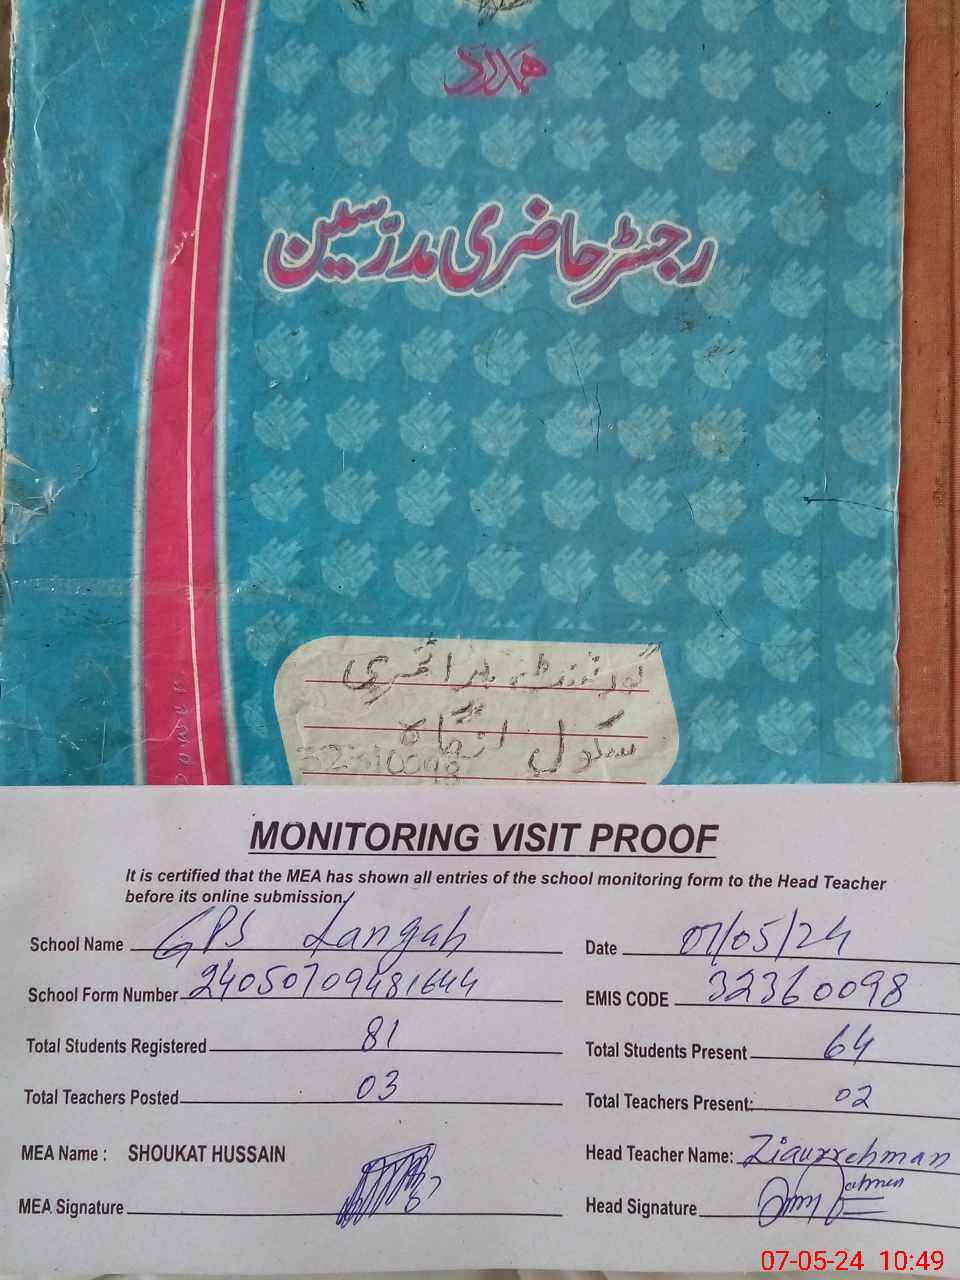 ہمدرد
رجسٹر حاضری مدرسین
گورنمنٹ پرائمری
سکول لنگاہ
MONITORING VISIT PROOF
It is certified that the MEA has shown all entries of the school monitoring form to the Head Teacher
before its online submission.
School Name GPS Langah Date 07/05/24
School Form Number 24050709481644 EMIS CODE 32360098
Total Students Registered 81 Total Students Present 64
Total Teachers Posted 03 Total Teachers Present: 02
MEA Name : SHOUKAT HUSSAIN Head Teacher Name: Ziaurrehman
MEA Signature Head Signature
07-05-24 10:49